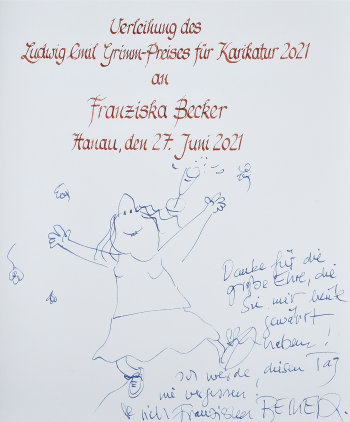 Verleihung des
Ludwig Emil Grimm-Preises für Karikatur 2021
an
Franziska Becker
Hanau, den 27. Juni 2021
Danke für die
große Ehre, die
Sie mir heute
gewährt
haben!
Ich werde diesen Tag
nie vergessen!
Franziska BECKER